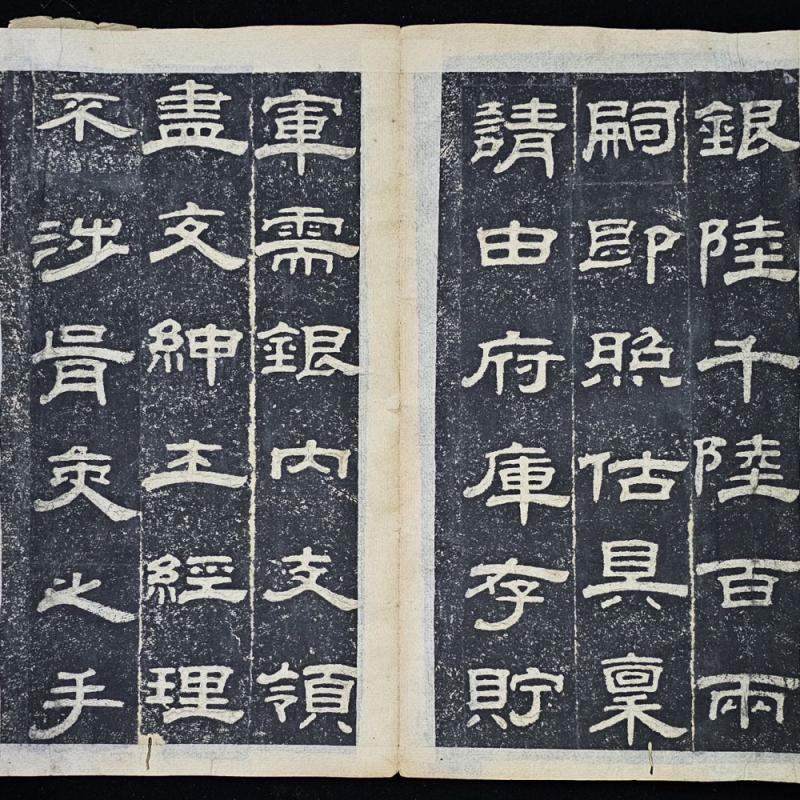 銀陸千陸百兩
嗣即照估具稟
請由府庫存貯
軍需銀內支領
盡交紳士經理
不涉胥吏之手